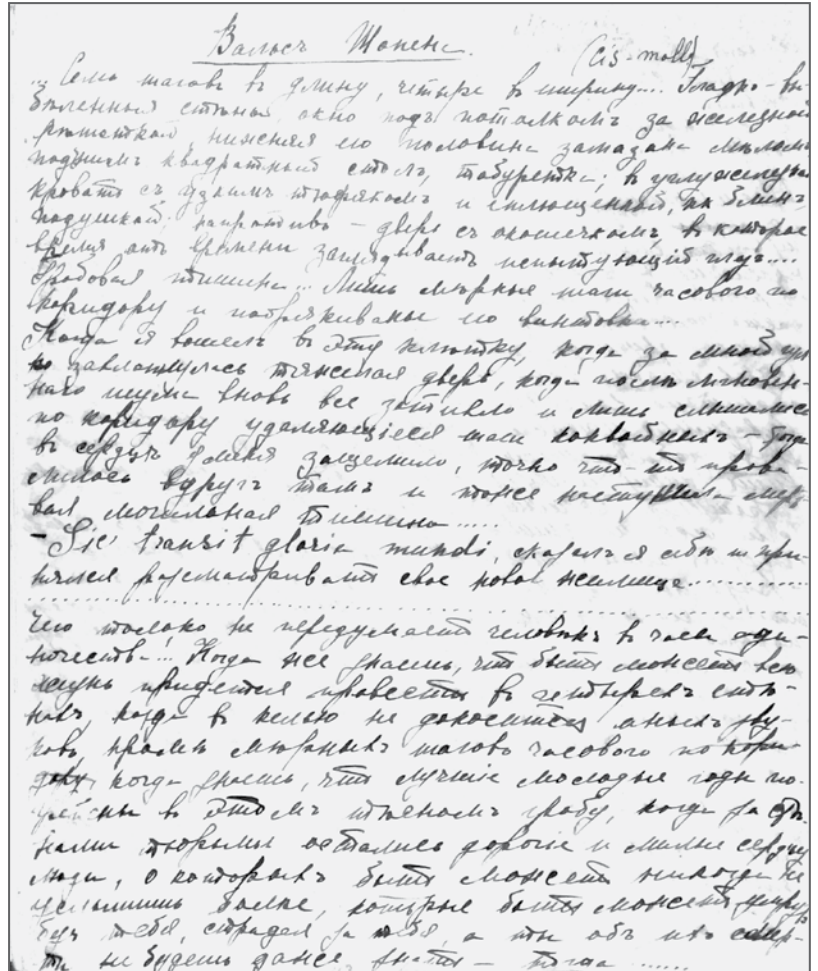 Вальсъ Шопена.
(cis-moll)
... Семь шаговъ въ длину, четыре въ ширину.... Гладко-вы-
бѣленныя стѣны, окно подъ потолкомъ за желѣзной
рѣшеткой, нижняя его половина замазана мѣломъ
подъ нимъ квадратный столъ, табуретка; въ углу желѣзная
кровать съ узкимъ тюфякомъ и сплющенной, какъ блинъ,
подушкой; напротивъ – дверь съ окошечкомъ, въ которое
время отъ времени заглядываетъ испытующій глазъ....
Гробовая тишина... Лишь мѣрные шаги часового по
корридору и побрякиванье его винтовки....
Когда я вошелъ въ эту клѣтку, когда за мной
захлопнулась тяжелая дверь, когда послѣ мгновен-
наго шума вновь все затихло и лишь слышались
по коридору удаляющіеся шаги конвойныхъ –
въ сердцѣ у меня защемило, точно что-то прова-
лилось вдругъ тамъ и тоже наступила мерт-
вая могильная тишина.....
– Sic transit gloria mundi, сказалъ я себѣ и при-
нялся разсматривать свое новое жилище............
Чего только не передумаетъ человѣкъ въ часы оди-
ночества!... Когда же знаешь, что быть можетъ всю
жизнь придется провести въ четырехъ стѣ-
нахъ, когда въ келью не доносится иныхъ зву-
ковъ, кромѣ мѣрныхъ шаговъ часового по кори-
дору, когда знаешь, что лучшіе молодые годы по-
въ этомъ тѣсномъ гробу, когда за стѣ-
нами тюрьмы остались дорогіе и милые сердцу
люди, о которыхъ быть можетъ никогда не
услышишь болѣе, которые быть можетъ умрутъ
безъ тебя, страдая за тебя, а ты объ ихъ смер-
ти не будешь даже знать – тогда ......